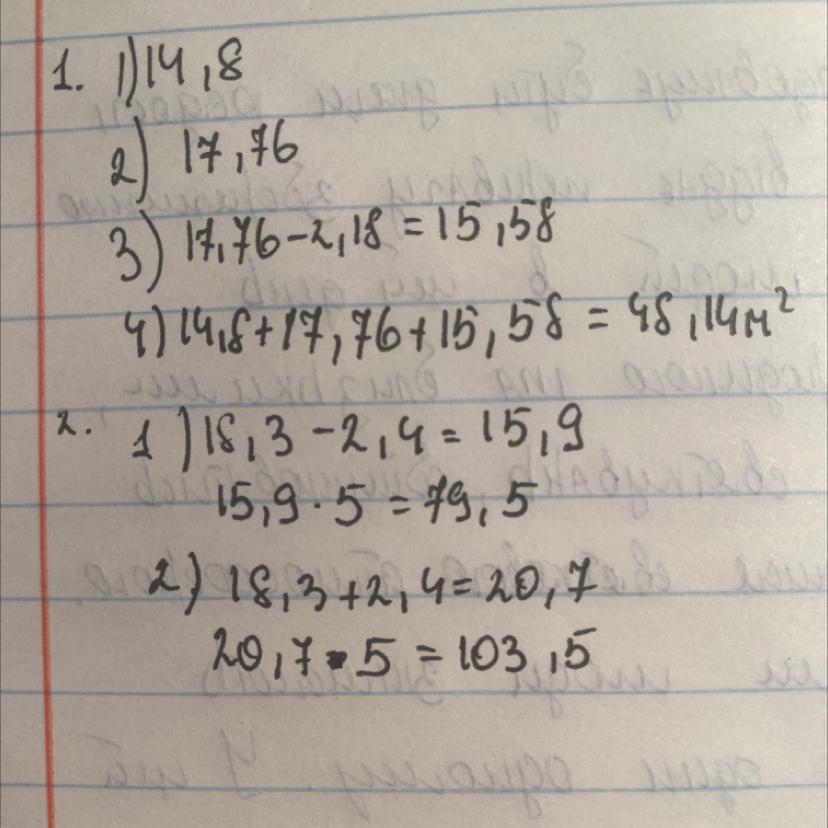 1. 1) 14,8
2) 17,76
3) 17,76-2,18=15,58
4) 14,8+17,76+15,58=48,14м²
2. 1) 18,3-2,4=15,9
15,9·5=79,5
2) 18,3+2,4=20,7
20,7·5=103,5